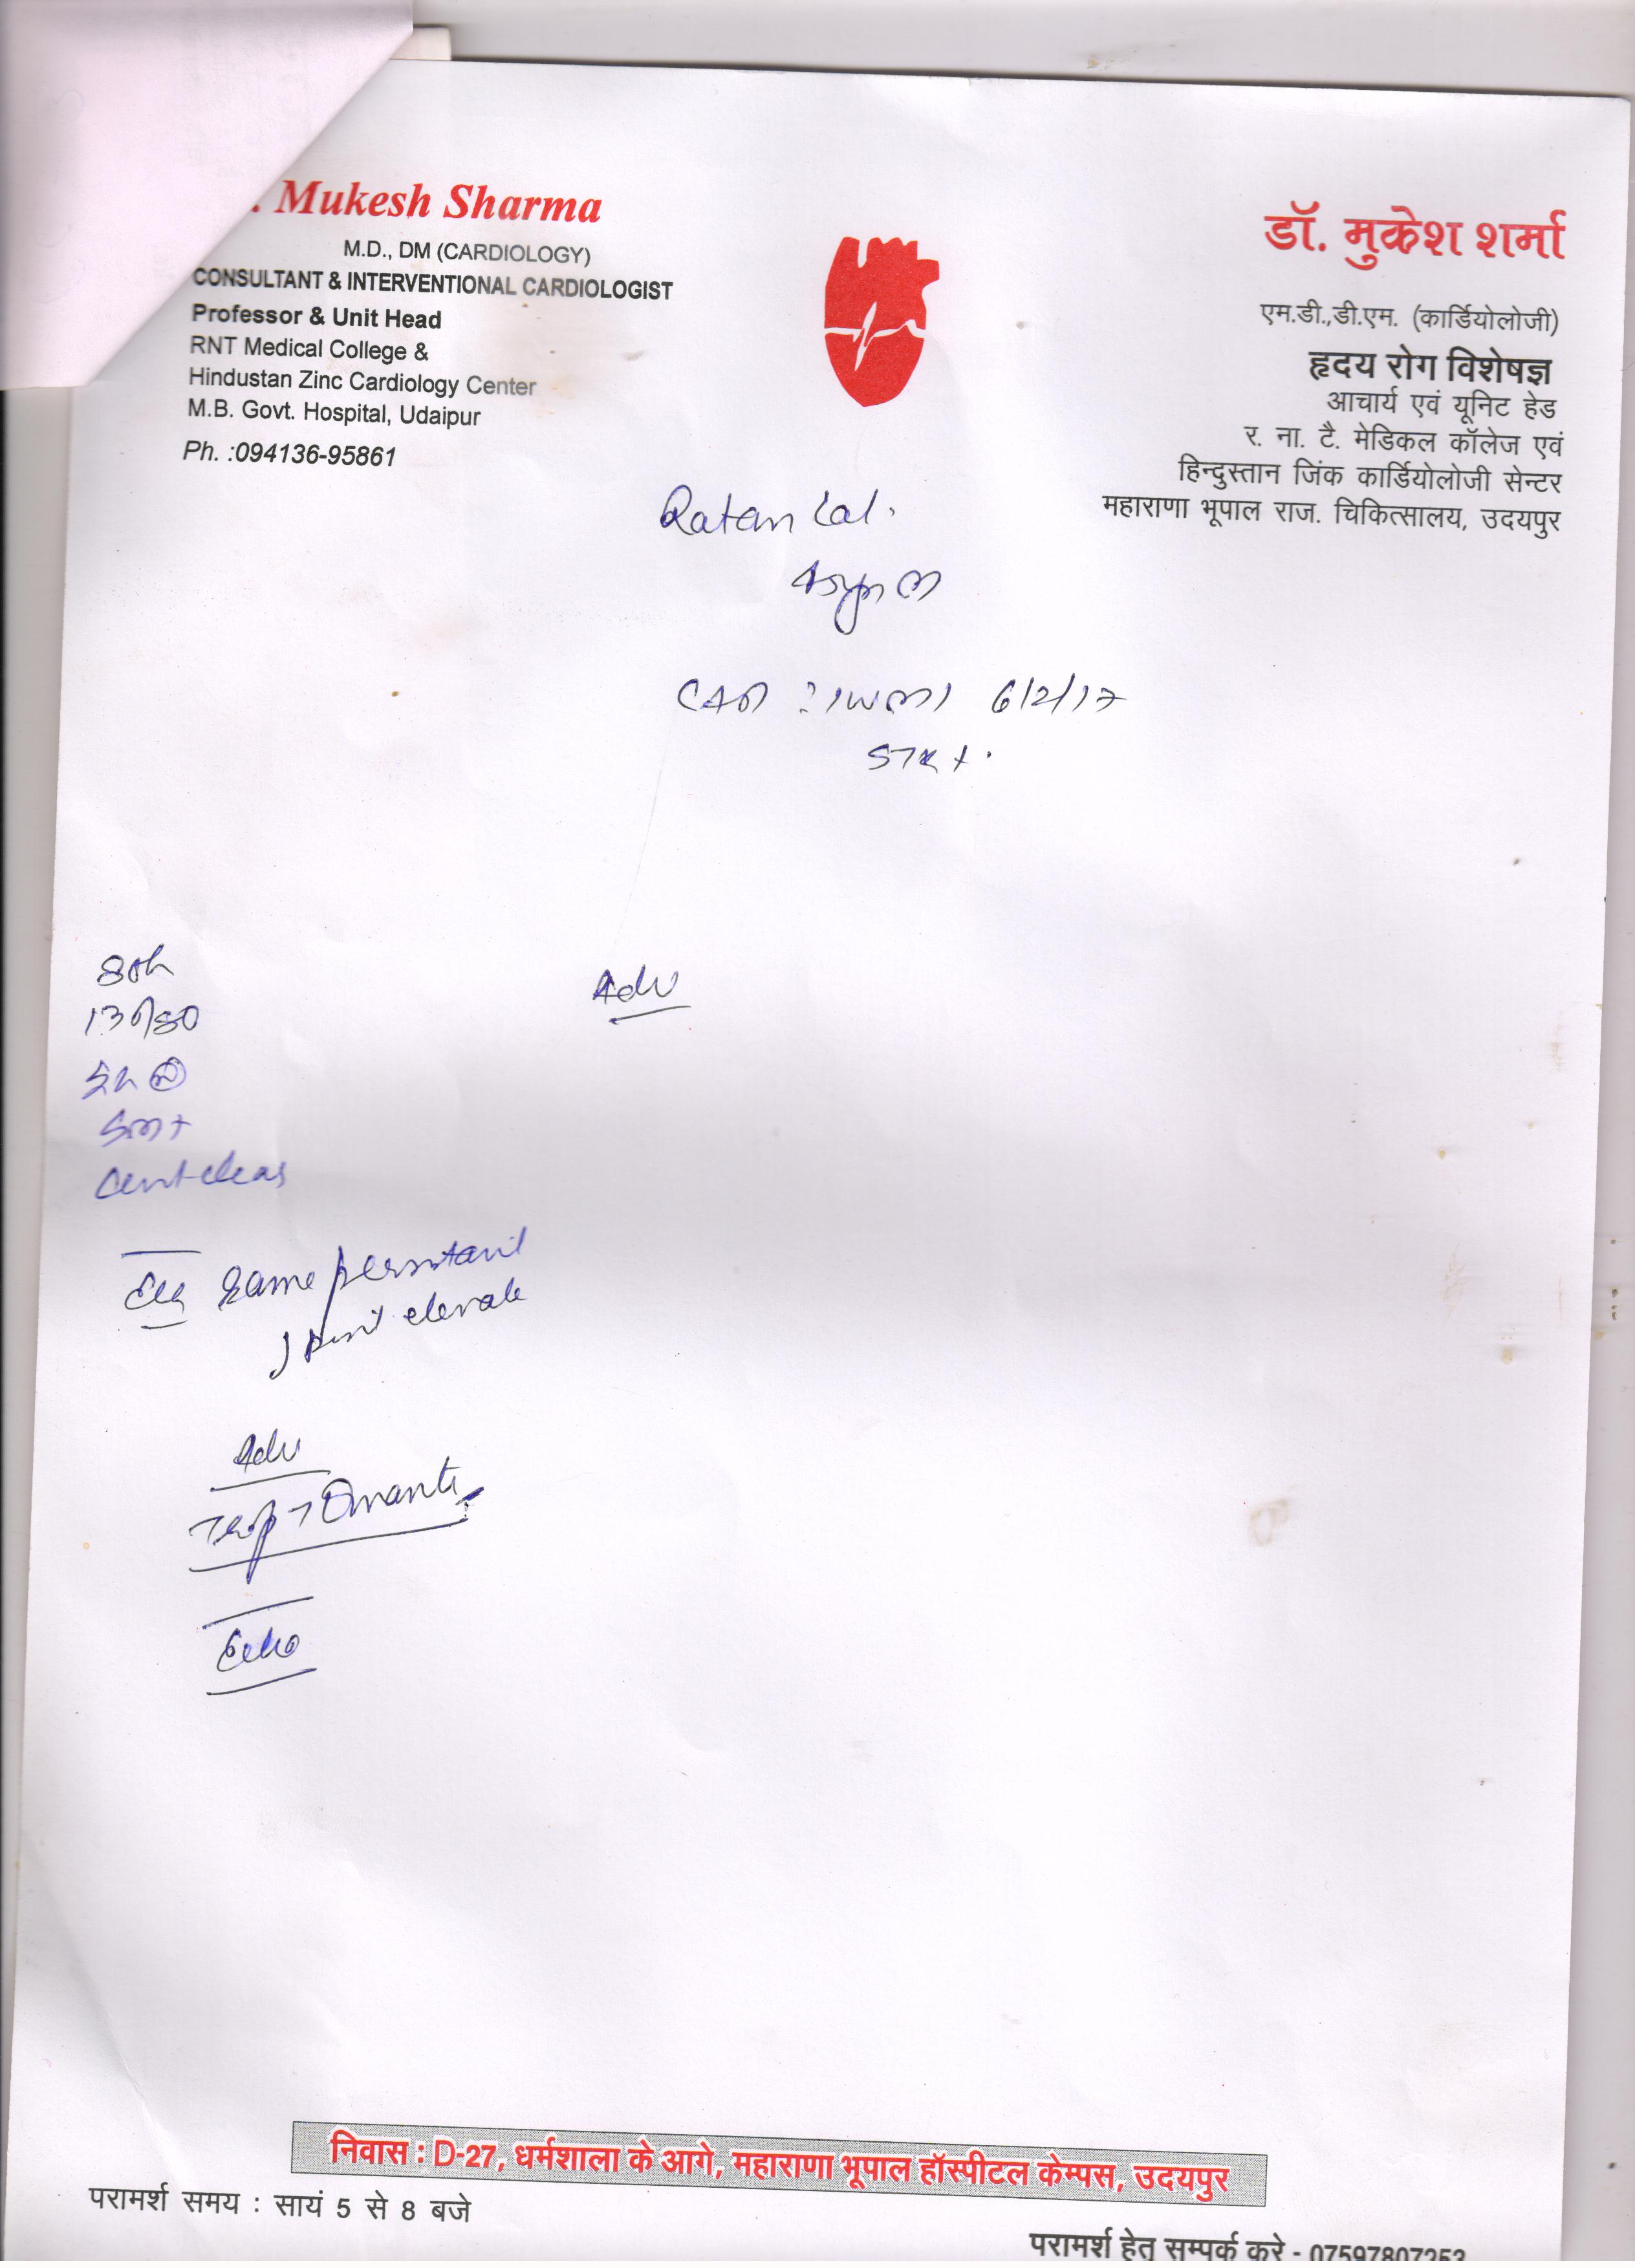 . Mukesh Sharma
M.D., DM (CARDIOLOGY)
CONSULTANT & INTERVENTIONAL CARDIOLOGIST
Professor & Unit Head
RNT Medical College &
Hindustan Zinc Cardiology Center
M.B. Govt. Hospital, Udaipur
Ph. :094136-95861
डॉ. मुकेश शर्मा
एम.डी.,डी.एम. (कार्डियोलोजी)
हृदय रोग विशेषज्ञ
आचार्य एवं यूनिट हेड
र. ना. टै. मेडिकल कॉलेज एवं
हिन्दुस्तान जिंक कार्डियोलोजी सेन्टर
महाराणा भूपाल राज. चिकित्सालय, उदयपुर
Ratan Lal.
CAD : IWMI 6/2/17
STK +.
Adv
130/80
chest clear
same persistant
J point elevate
Adv
Trop T Quanti
Echo
निवास : D-27, धर्मशाला के आगे, महाराणा भूपाल हॉस्पीटल केम्पस, उदयपुर
परामर्श समय : सायं 5 से 8 बजे
परामर्श हेतु सम्पर्क करे - 07597807253